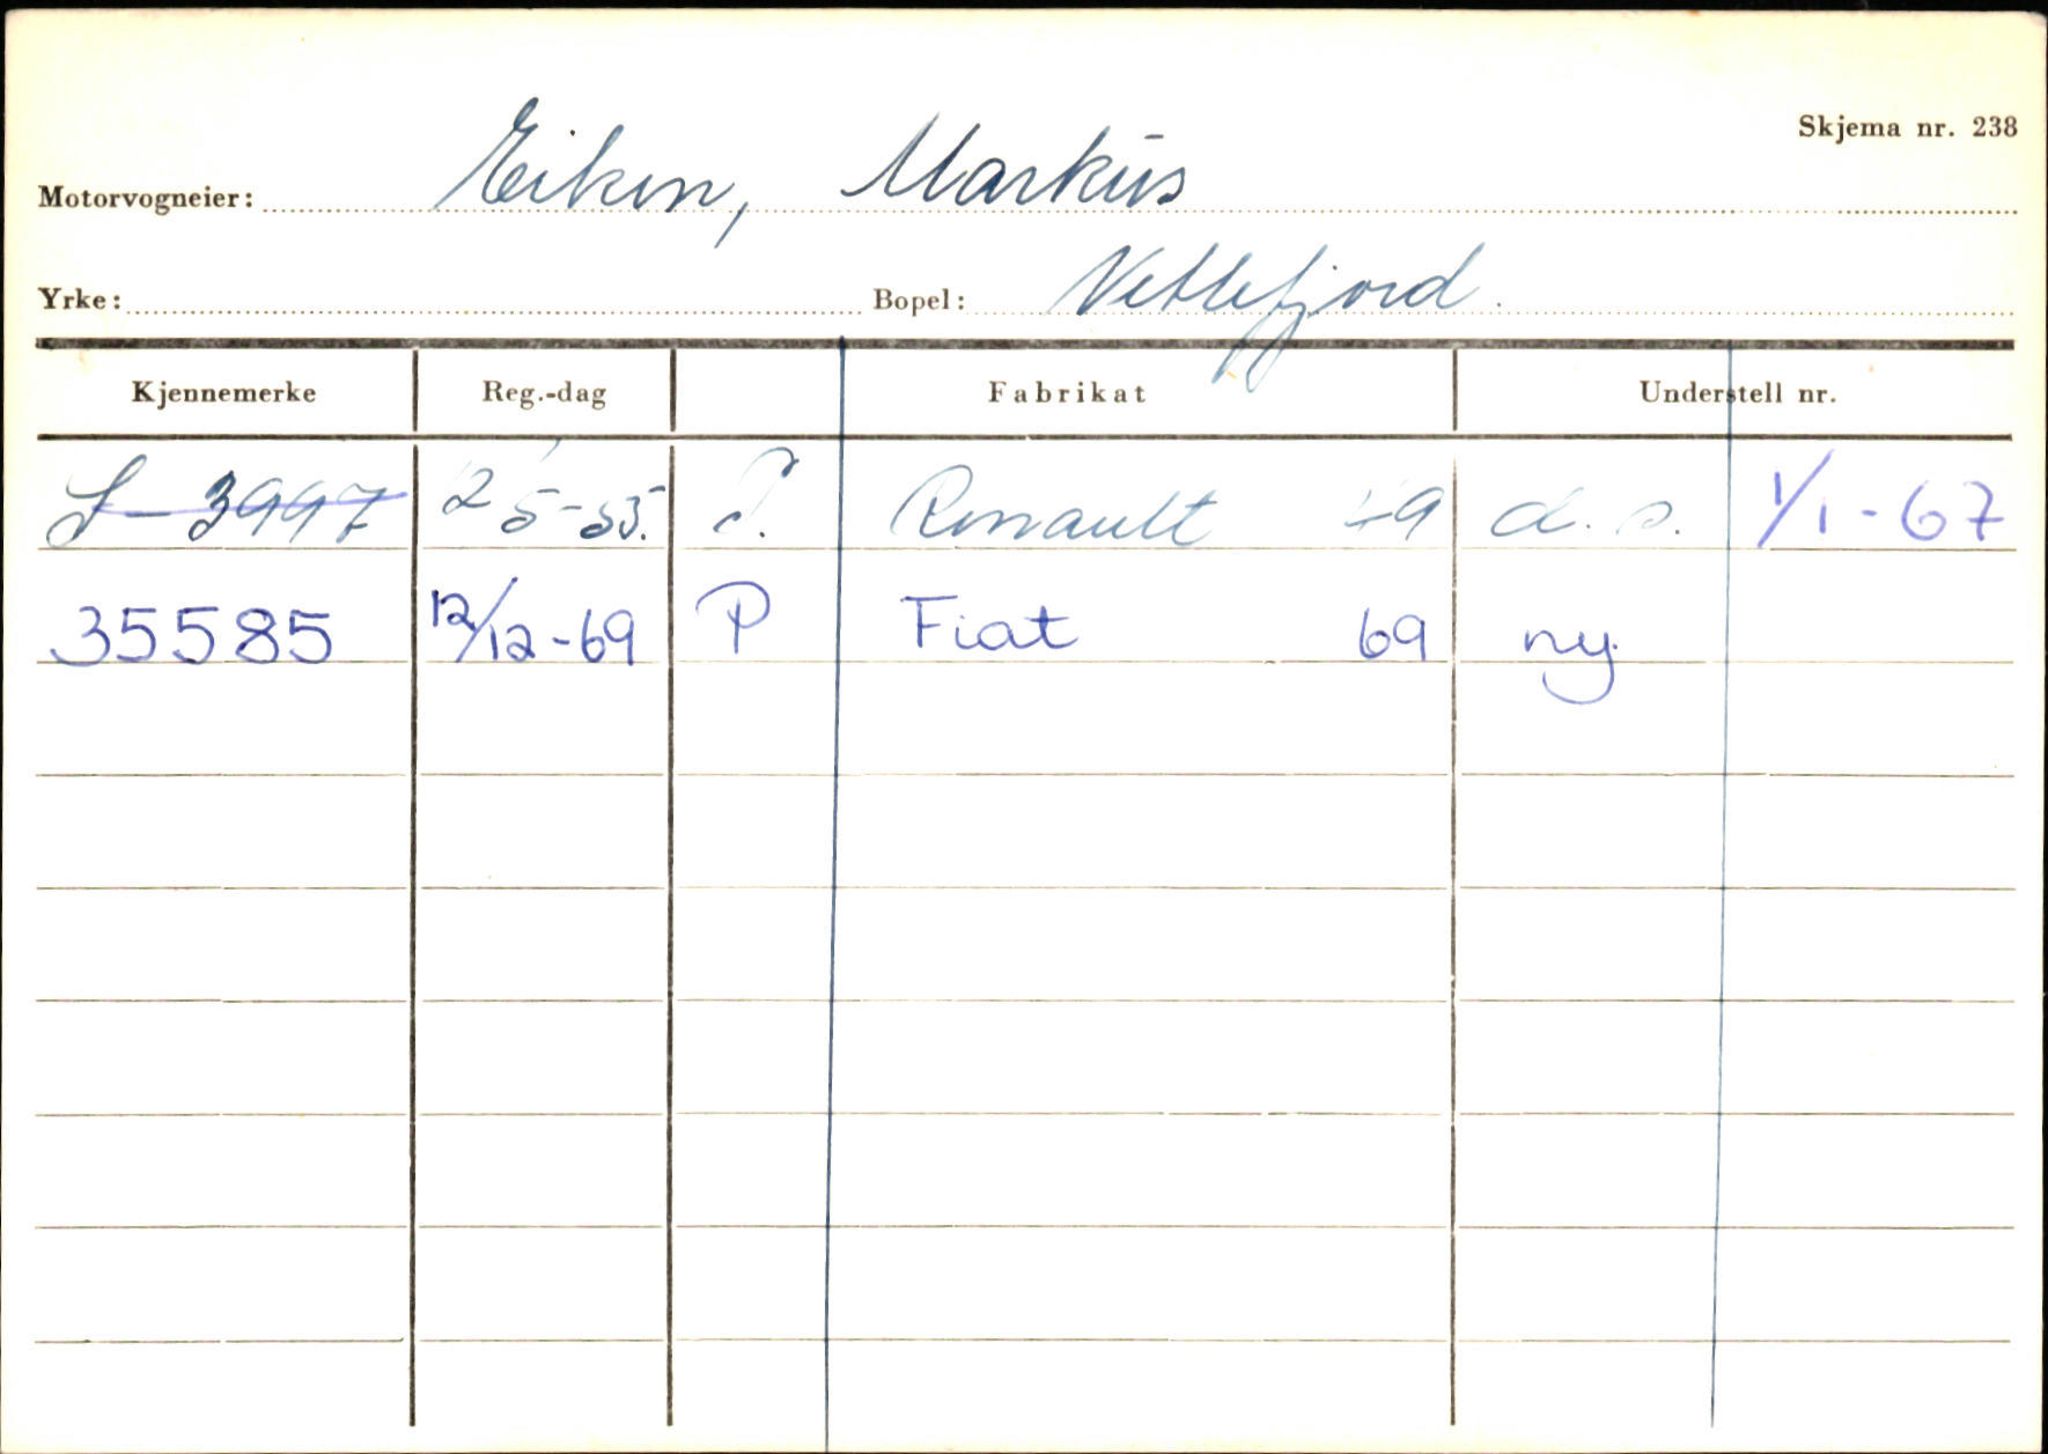 Skjema nr. 238
Motorvogneier: Eiken, Markus
Yrke: Bopel: Vetlefjord.
Kjennemerke Reg.-dag Fabrikat Understell nr.
S-3997 2/5-55. P. Renault 49 d. s. 1/1-67
35585 12/12-69 P Fiat 69 ny.